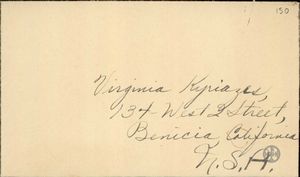 150
Virginia Kyriazes,
134 West J Street,
Benicia, California
N.S.H.